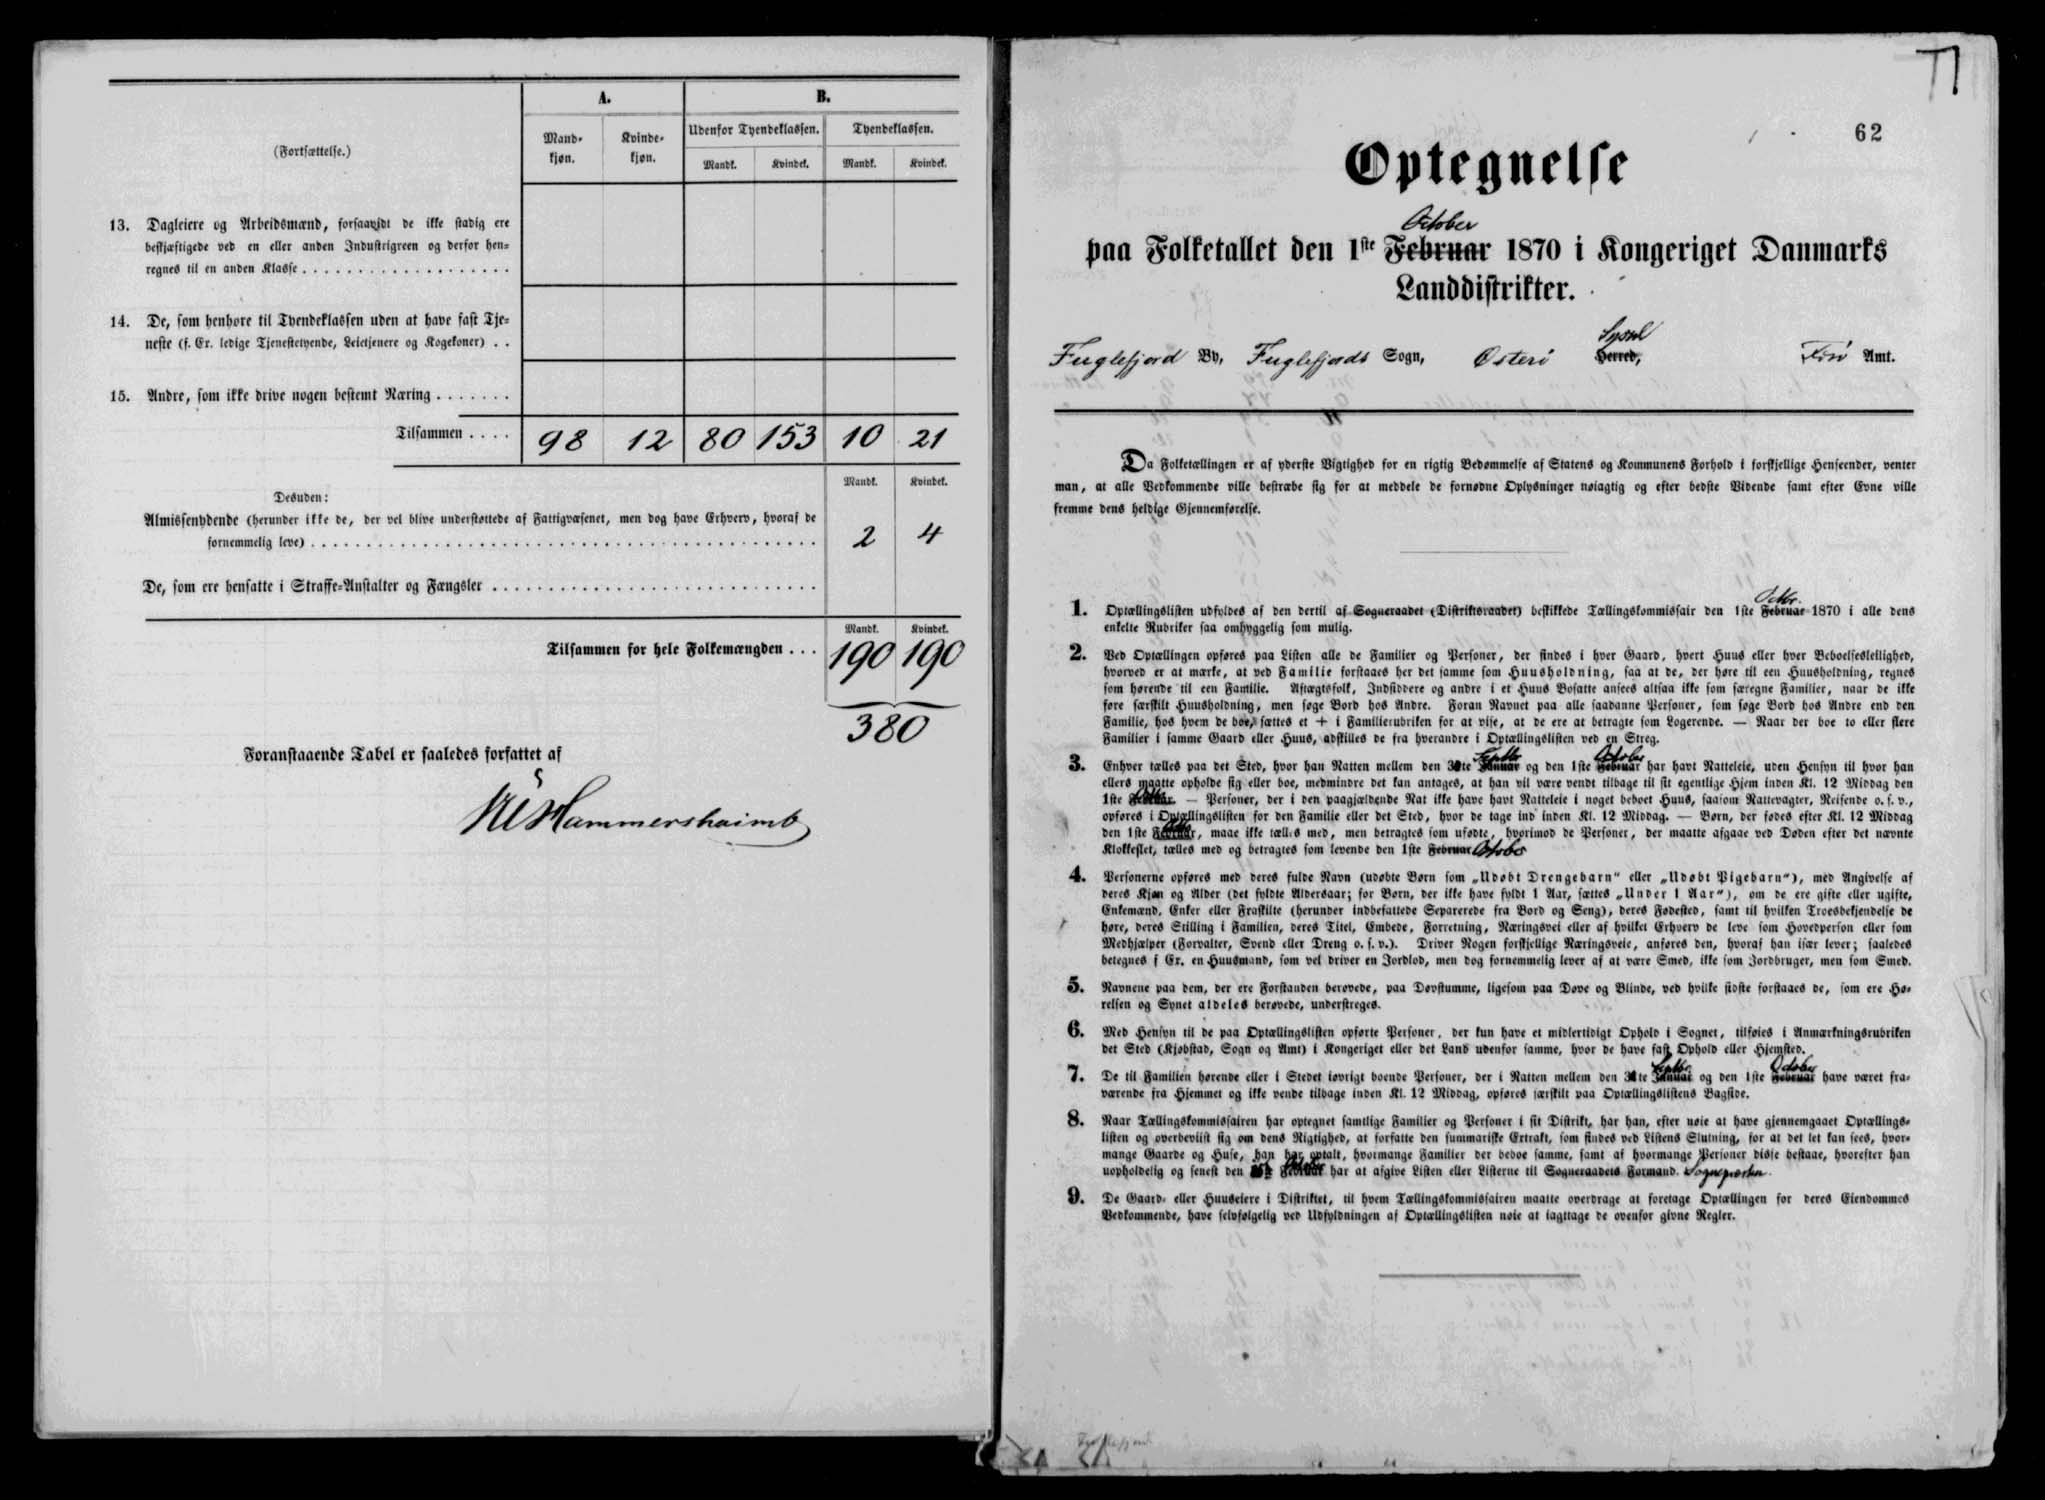 (Fortsættelse.)
A.
B.
Mand-
kjøn.
Kvinde-
kjøn.
Udenfor Tyendeklassen.
Tyendeklassen.
Mandk.
Kvindek.
Mandk.
Kvindek.
13. Dagleiere og Arbeidsmænd, forsaavidt de ikke stadig ere
beskjæftigede ved en eller anden Industrigreen og derfor hen-
regnes til en anden Klasse . . . . . . . . . . . . . . . . . . .
14. De, som henhøre til Tyendeklassen uden at have fast Tje-
neste (f. Ex. ledige Tjenestetyende, Leietjenere og Kogekoner) . .
15. Andre, som ikke drive nogen bestemt Næring . . . . . . .
Tilsammen . . . . 98 12 80 153 10 21
Mandk. Kvindek.
Desuden:
Almissenydende (herunder ikke de, der vel blive understøttede af Fattigvæsenet, men dog have Erhverv, hvoraf de
fornemmelig leve) . . . . . . . . . . . . . . . . . . . . 2 4
De, som ere hensatte i Straffe-Anstalter og Fængsler . . . . . . . . . . . . . . . . . . . .
Mandk. Kvindek.
Tilsammen for hele Folkemængden . . . 190 190
380
Foranstaaende Tabel er saaledes forfattet af
Hammershaimb
62
Optegnelse
October
paa Folketallet den 1ste Februar 1870 i Kongeriget Danmarks
Landdistrikter.
Syssel
Fuglefjord By, Fuglefjords Sogn, Østerö Herred, Færö Amt.
Da Folketællingen er af yderste Vigtighed for en rigtig Bedømmelse af Statens og Kommunens Forhold i forskjellige Henseender, venter
man, at alle Vedkommende ville bestræbe sig for at meddele de fornødne Oplysninger nøiagtig og efter bedste Vidende samt efter Evne ville
fremme dens heldige Gjennemførelse.
Octbr.
1. Optællingslisten udfyldes af den dertil af Sogneraadet (Distriktsraadet) beskikkede Tællingskommissair den 1ste Februar 1870 i alle dens
enkelte Rubriker saa omhyggelig som mulig.
2. Ved Optællingen opføres paa Listen alle de Familier og Personer, der findes i hver Gaard, hvert Huus eller hver Beboelsesleilighed,
hvorved er at mærke, at ved Familie forstaaes her det samme som Huusholdning, saa at de, der høre til een Huusholdning, regnes
som hørende til een Familie. Aftægtsfolk, Indsiddere og andre i et Huus Bosatte ansees altsaa ikke som særegne Familier, naar de ikke
føre særskilt Huusholdning, men søge Bord hos Andre. Foran Navnet paa alle saadanne Personer, som søge Bord hos Andre end den
Familie, hos hvem de boe, sættes et + i Familierubriken for at vise, at de ere at betragte som Logerende. — Naar der boe to eller flere
Familier i samme Gaard eller Huus, adskilles de fra hverandre i Optællingslisten ved en Streg.
Septbr October
3. Enhver tælles paa det Sted, hvor han Natten mellem den 31te Januar og den 1ste Februar har havt Natteleie, uden Hensyn til hvor han
ellers maatte opholde sig eller boe, medmindre det kan antages, at han vil være vendt tilbage til sit egentlige Hjem inden Kl. 12 Middag den
1ste Februar. — Personer, der i den paagjældende Nat ikke have havt Natteleie i noget beboet Huus, saasom Nattevagter, Reisende o. s. v.,
opføres i Optællingslisten for den Familie eller det Sted, hvor de tage ind inden Kl. 12 Middag. — Børn, der fødes efter Kl. 12 Middag
den 1ste Februar, maae ikke tælles med, men betragtes som ufødte, hvorimod de Personer, der maatte afgaae ved Døden efter det nævnte
Klokkeslet, tælles med og betragtes som levende den 1ste Februar October
4. Personerne opføres med deres fulde Navn (udøbte Børn som „Udøbt Drengebarn“ eller „Udøbt Pigebarn“), med Angivelse af
deres Kjøn og Alder (det fyldte Aldersaar; for Børn, der ikke have fyldt 1 Aar, sættes „Under 1 Aar“), om de ere gifte eller ugifte,
Enkemænd, Enker eller Fraskilte (herunder indbefattede Separerede fra Bord og Seng), deres Fødested, samt til hvilken Troesbekjendelse de
høre, deres Stilling i Familien, deres Titel, Embede, Forretning, Næringsvei eller af hvilket Erhverv de leve som Hovedperson eller som
Medhjælper (Forvalter, Svend eller Dreng o. s. v.). Driver Nogen forskjellige Næringsveie, anføres den, hvoraf han især lever; saaledes
betegnes f Ex. en Huusmand, som vel driver en Jordlod, men dog fornemmelig lever af at være Smed, ikke som Jordbruger, men som Smed.
5. Navnene paa dem, der ere Forstanden berøvede, paa Døvstumme, ligesom paa Døve og Blinde, ved hvilke sidste forstaaes de, som ere Hø-
relsen og Synet aldeles berøvede, understreges.
6. Med Hensyn til de paa Optællingslisten opførte Personer, der kun have et midlertidigt Ophold i Sognet, tilføies i Anmærkningsrubriken
det Sted (Kjøbstad, Sogn og Amt) i Kongeriget eller det Land udenfor samme, hvor de have fast Ophold eller Hjemsted.
Septbr October
7. De til Familien hørende eller i Stedet iøvrigt boende Personer, der i Natten mellem den 31te Januar og den 1ste Februar have været fra-
værende fra Hjemmet og ikke vende tilbage inden Kl. 12 Middag, opføres særskilt paa Optællingslistens Bagside.
8. Naar Tællingskommissairen har optegnet samtlige Familier og Personer i sit Distrikt, har han, efter nøie at have gjennemgaaet Optællings-
listen og overbeviist sig om dens Rigtighed, at forfatte den summariske Extrakt, som findes ved Listens Slutning, for at det let kan sees, hvor-
mange Gaarde og Huse, han har optalt, hvormange Familier der beboe samme, samt af hvormange Personer disse bestaae, hvorefter han
uopholdelig og senest den Februar har at afgive Listen eller Listerne til Sogneraadets Formand. Sognepræsten.
9. De Gaard- eller Huuseiere i Distriktet, til hvem Tællingskommissairen maatte overdrage at foretage Optællingen for deres Eiendommes
Vedkommende, have selvfølgelig ved Udfyldningen af Optællingslisten nøie at iagttage de ovenfor givne Regler.